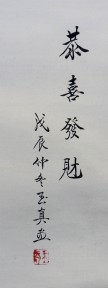 恭喜發財
戊辰仲冬玉真畫